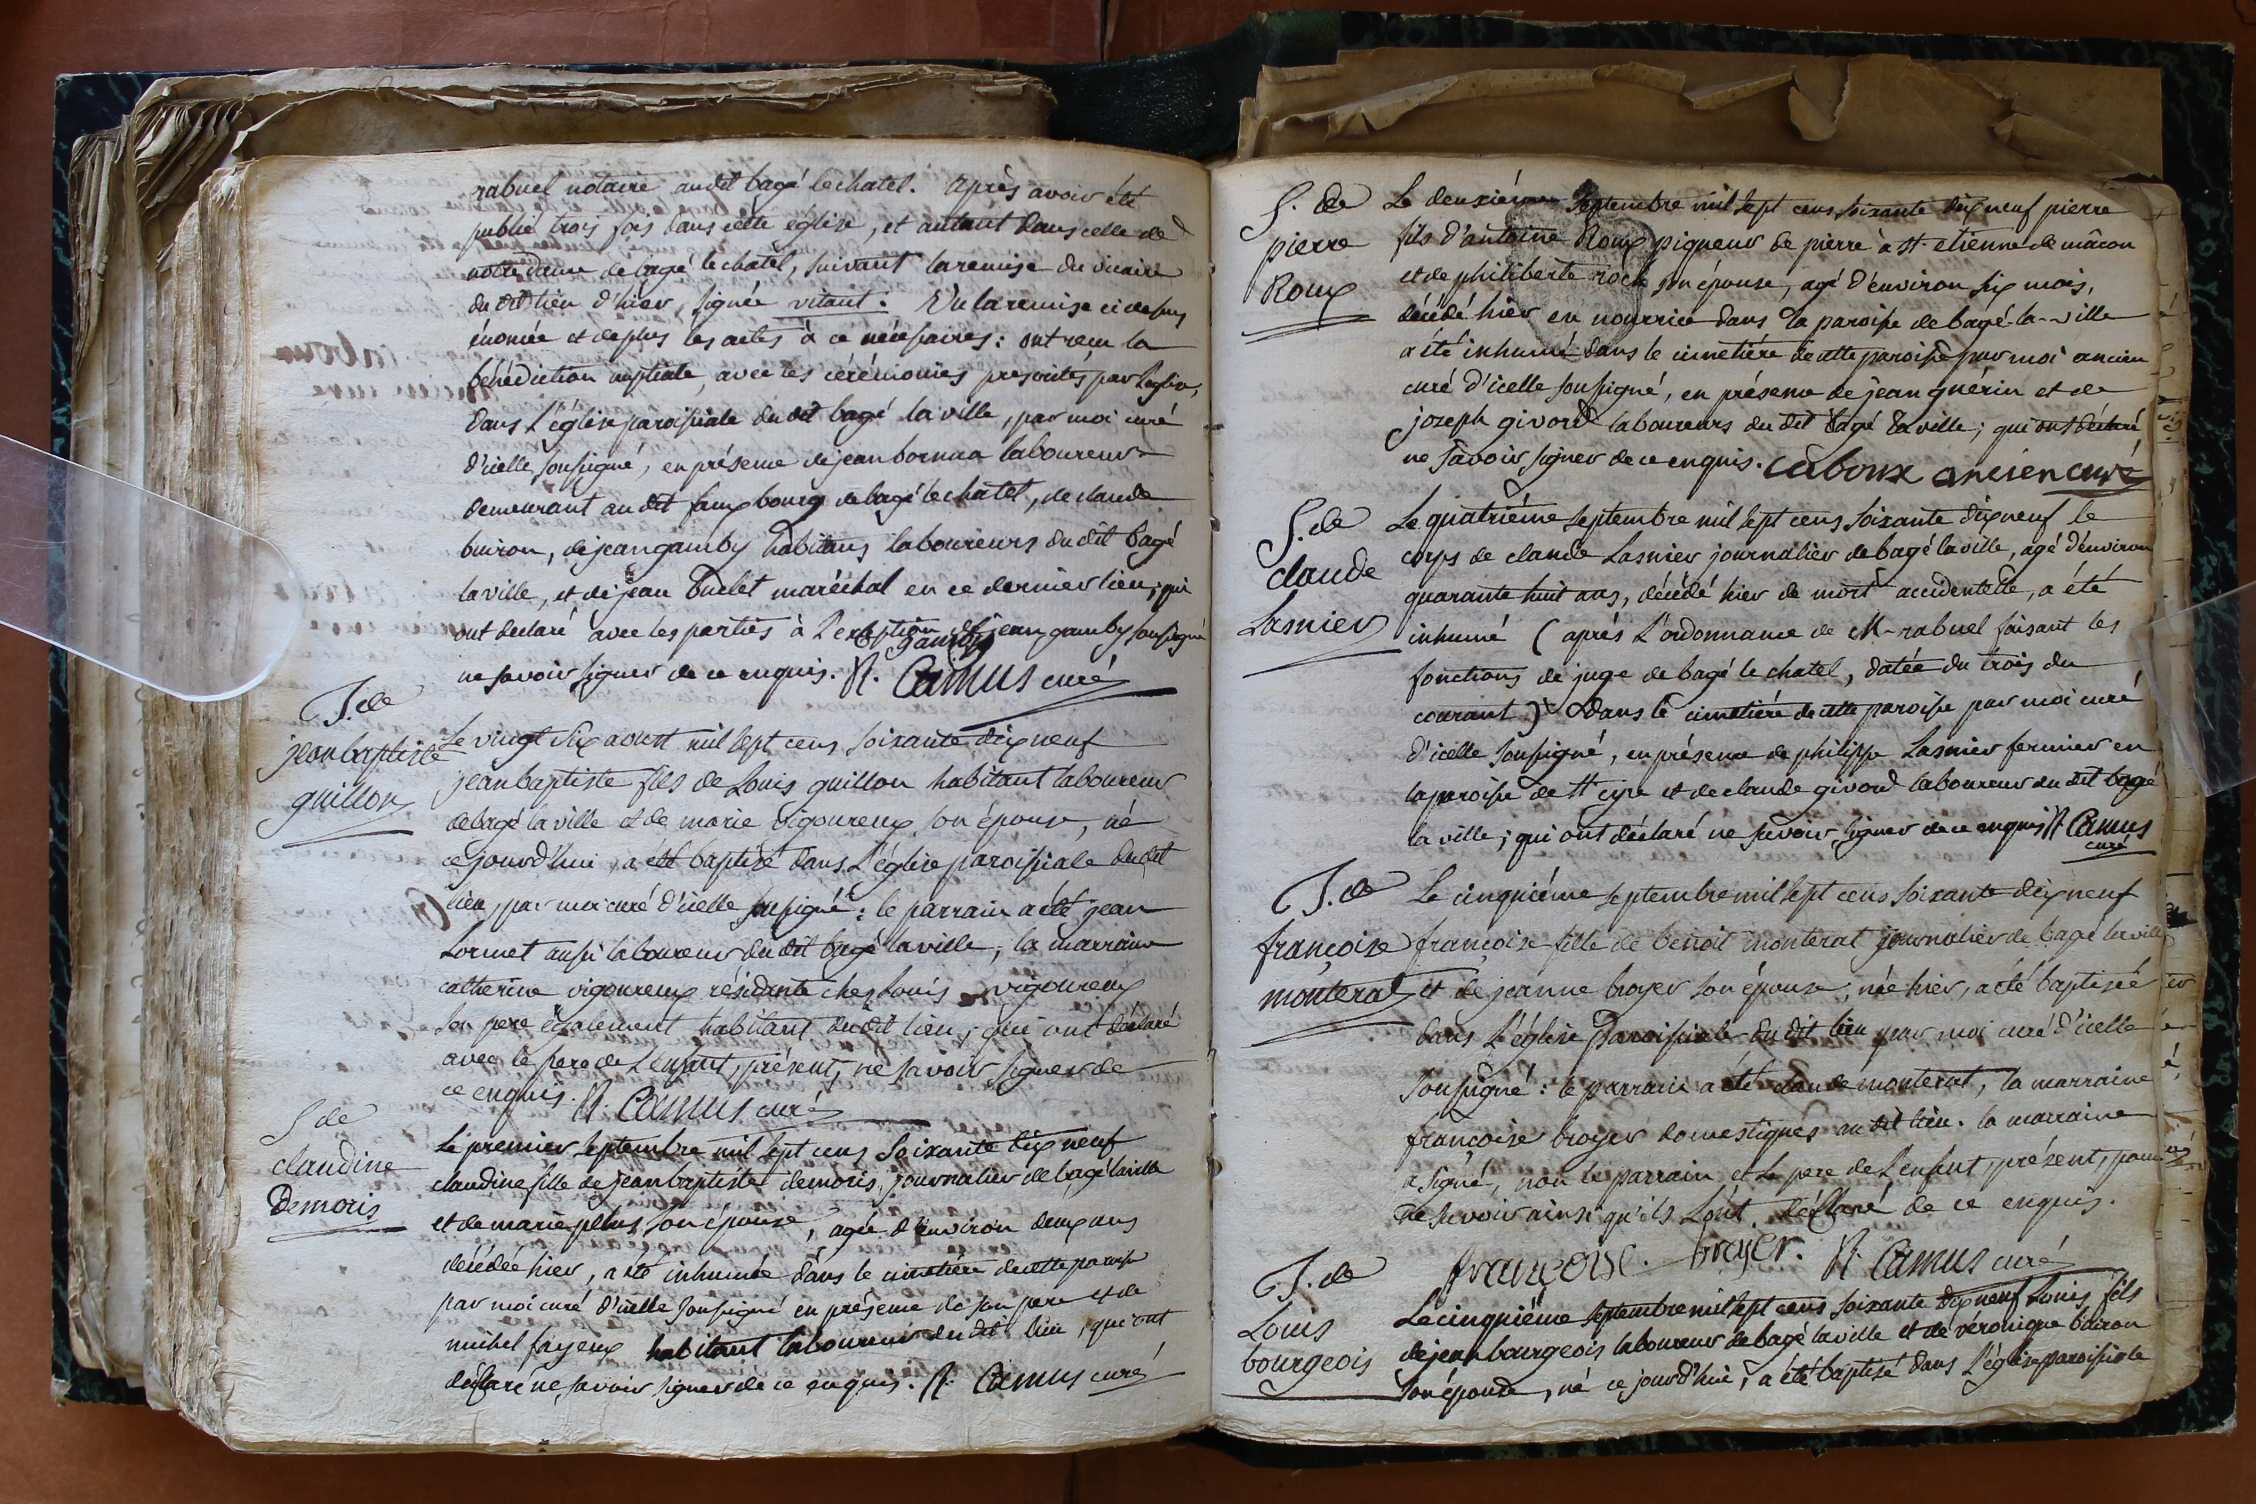 rabuel notaire audit bagé lechatel. après avoir été
publié trois fois dans cette église, et autant dans celle de
notre dame de bagé le chatel, suivant la remise du vicaire
du dit lieu d'hier, signée vitaut. Vu la remise ci dessus
énoncée et de plus les actes à ce nécessaires: ont reçu la
bénédiction nuptiale, avec les cérémonies prescrites par l'église,
dans L'église paroissiale du dit bagé la ville, par moi curé
d'icelle soussigné, en présence de jean laboureur
demeurant au dit fauxbourg de bagé le chatel, de claude
buiron, de jean gamby habitans laboureurs du dit bagé
la ville, et de jean maréchal en ce dernier lieu; qui
ont declaré avec les parties à L'exception de jean gamby soussigné
ne savoir signer de ce enquis. gamby R. Camus curé
J. de
jean baptiste
guillon
Le vingt six aoust mil sept cens soixante dix neuf
jean baptiste fils de Louis guillon habitant laboureur
de bagé la ville et de marie vigoureux son épouse, né
ce jourd'hui, a été baptisé dans L'église paroissiale du dit
lieu, par moi curé d'icelle soussigné: le parrain a été jean
Lormet aussi laboureur du dit bagé la ville, la marraine
catherine vigoureux résidante chez Louis vigoureux
son pere également habitant du dit lieu; qui ont déclaré
avec le pere de L'enfant, présent, ne savoir signer de
ce enquis. R. Camus curé
S de
claudine
Demoris
Le premier septembre mil sept cens soixante dix neuf
claudine fille de jean baptiste demoris, journalier de bagé la ville
et de marie son épouse, agée d'environ deux ans
décédée hier, a été inhumée dans le cimetière de cette paroisse
par moi curé d'icelle soussigné en présence de son pere et de
michel fayeux habitant laboureur du dit lieu, qui ont
déclaré ne savoir signer de ce enquis. R. Camus curé
S. de
pierre
Roux
Le deuxième septembre mil sept cens soixante dix neuf pierre
fils d'antoine Roux piqueur de pierre à St. etienne de mâcon
et de philiberte roch son épouse, agé d'environ six mois,
décédé hier en nourrice dans la paroisse de bagé-la-ville
a été inhumé dans le cimetière de cette paroisse par moi ancien
curé d'icelle soussigné, en présence de jean guérin et de
joseph givord laboureurs du dit bagé la ville; qui ont déclaré
ne savoir signer de ce enquis. Caboux ancien curé
S. de
claude
Lasnier
Le quatrième septembre mil sept cens soixante dix neuf le
corps de claude Lasnier journalier de bagé la ville, agé d'environ
quarante huit ans, décédé hier de mort accidentelle, a été
inhumé (après L'ordonnance de M. rabuel faisant les
fonctions de juge de bagé le chatel, datée du trois du
courant) dans le cimetière de cette paroisse par moi curé
d'icelle soussigné, en présence de philippe Lasnier fermier en
la paroisse de St cyre et de claude givord laboureur du dit bagé
la ville; qui ont déclaré ne savoir signer de ce enquis R. Camus
curé
J. de
françoise
monterat
Le cinquième septembre mil sept cens soixante dix neuf
françoise fille de benoit monterat journalier de bagé la ville
et de jeanne broyer son épouse, née hier, a été baptisée
dans L'église paroissiale du dit lieu par moi curé d'icelle
soussigné: le parrain a été claude monterat, la marraine
françoise broyer domestiques au dit lieu. la marraine
a signé, non le parrain et le pere de L'enfant, présent, pour
ne savoir ainsi qu'ils L'ont déclaré de ce enquis.
françoise. broyer. R. Camus curé
J. de
Louis
bourgeois
Le cinquième septembre mil sept cens soixante dix neuf Louis fils
de jean bourgeois laboureur de bagé la ville et de veronique buiron
son épouse, né ce jourd'hui, a été baptisé dans L'église paroissiale